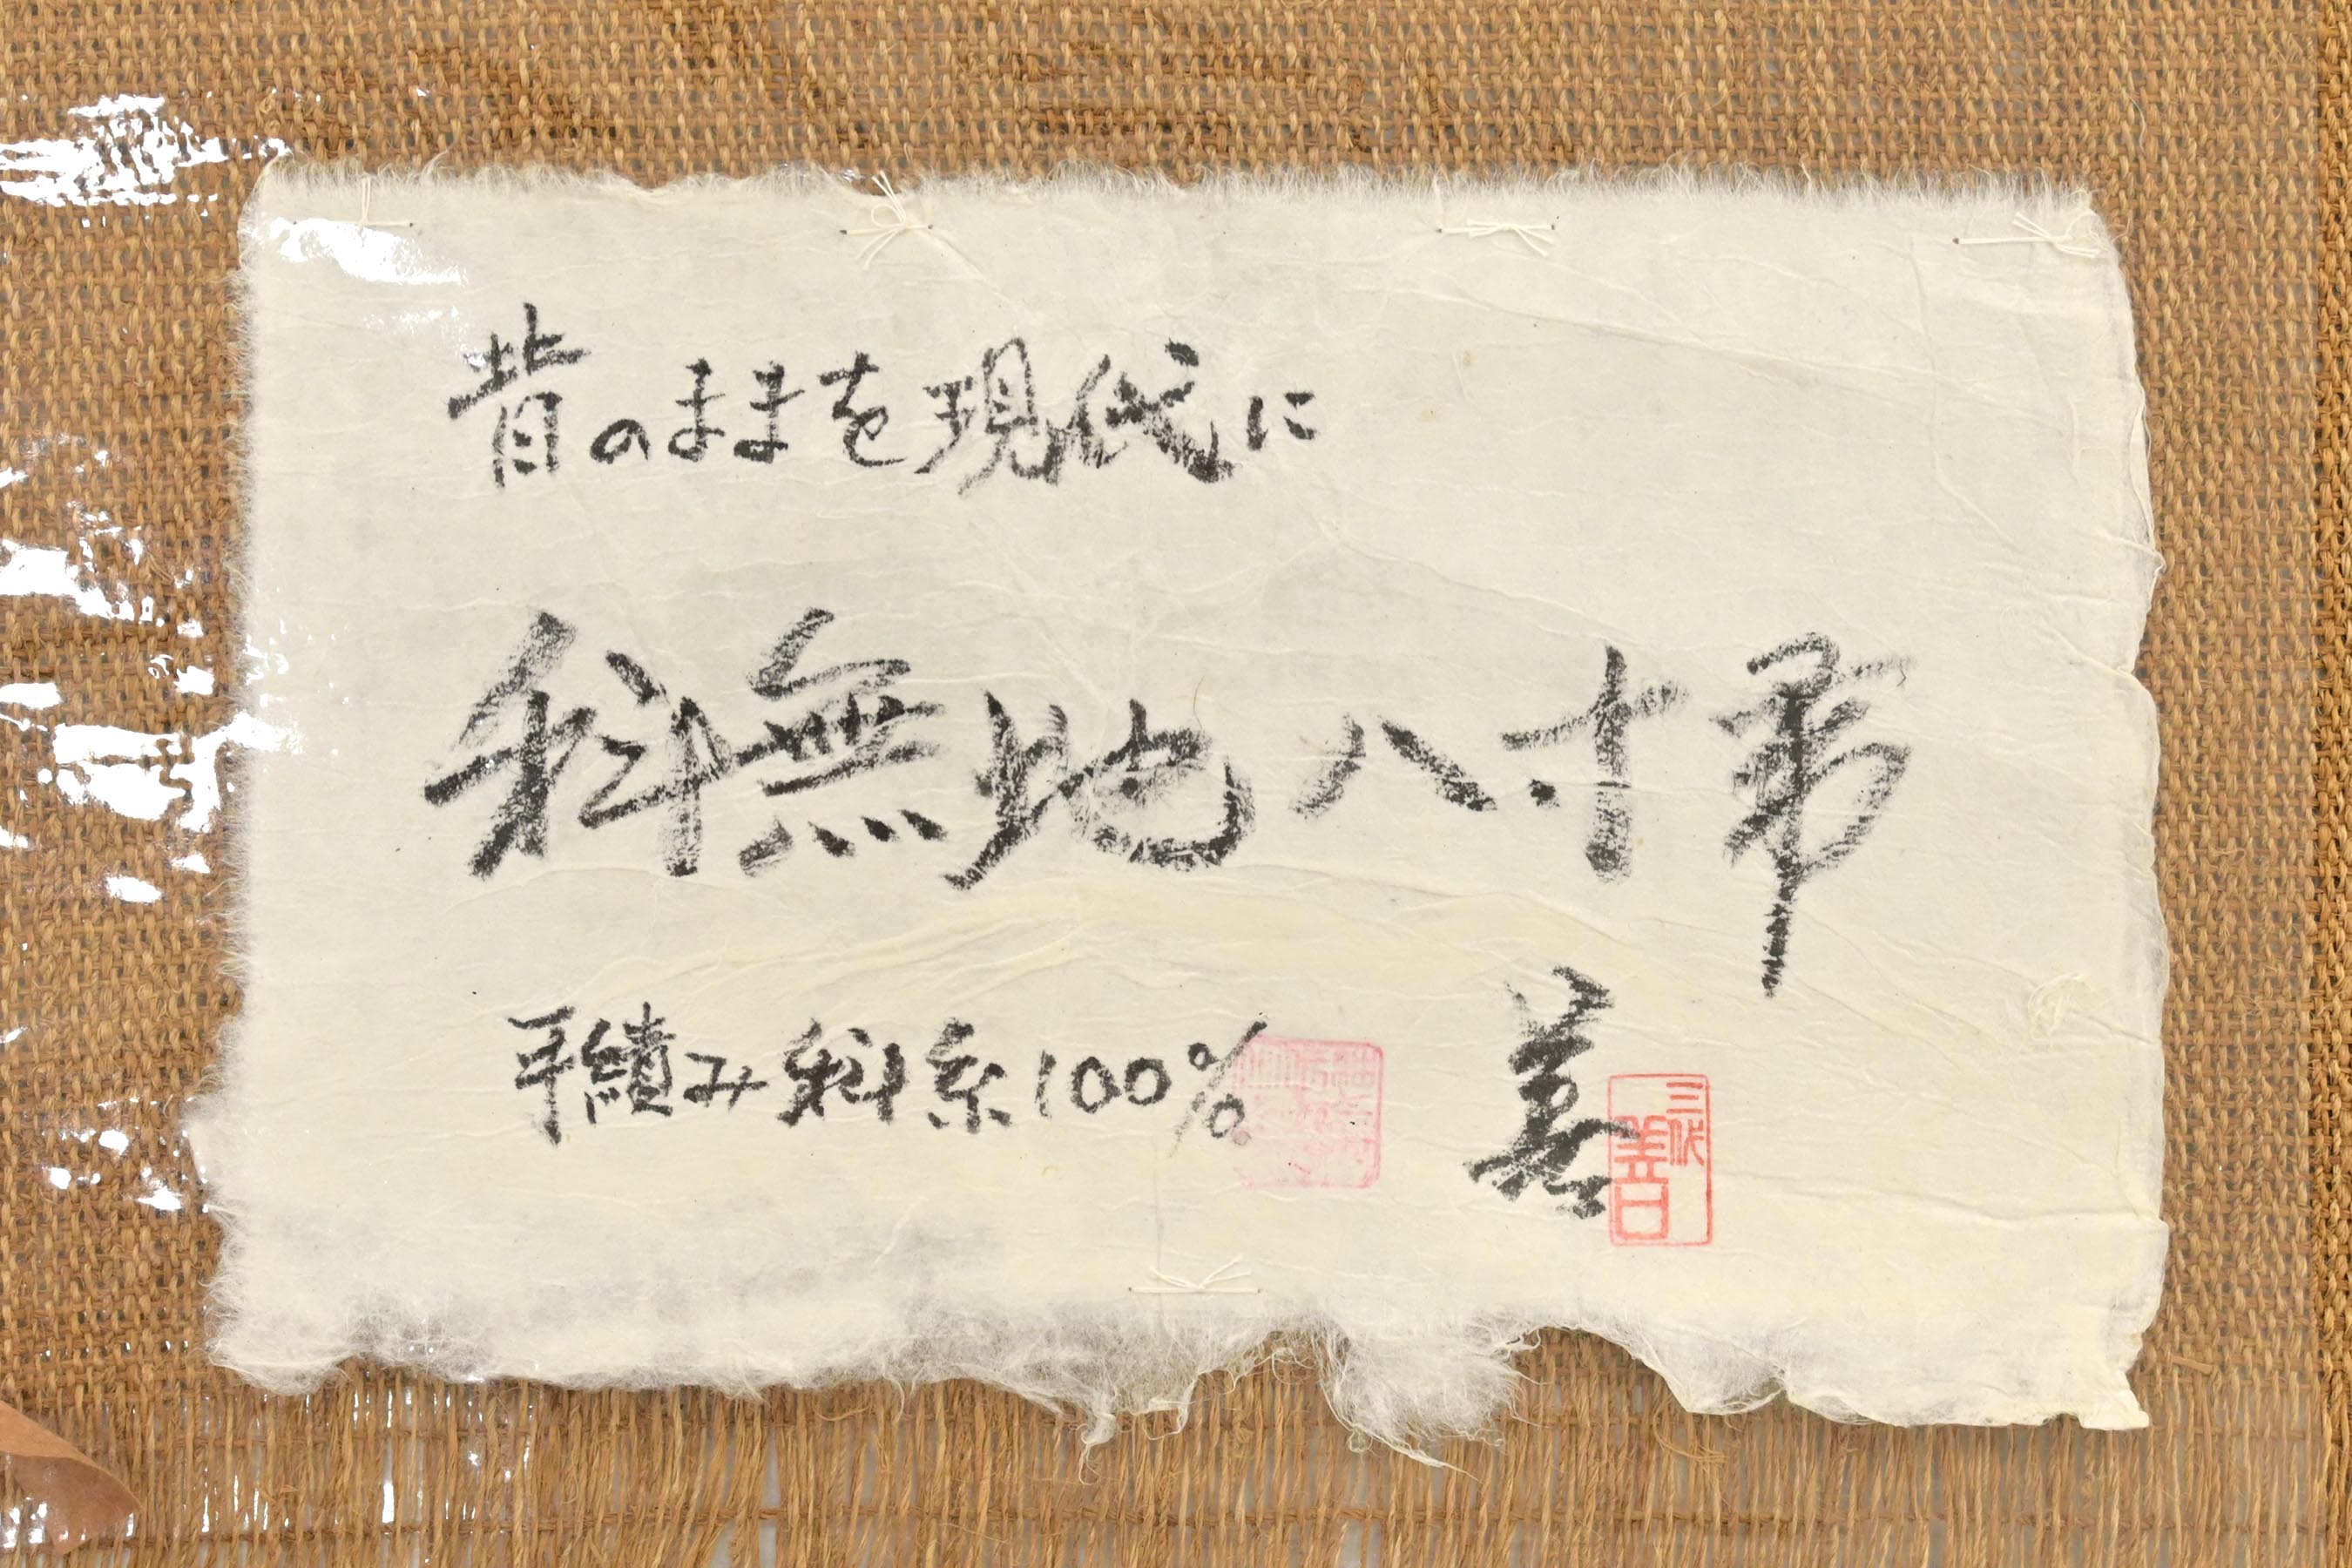 昔のままを現代に
科無地八寸帯
手績み科糸100%
三代